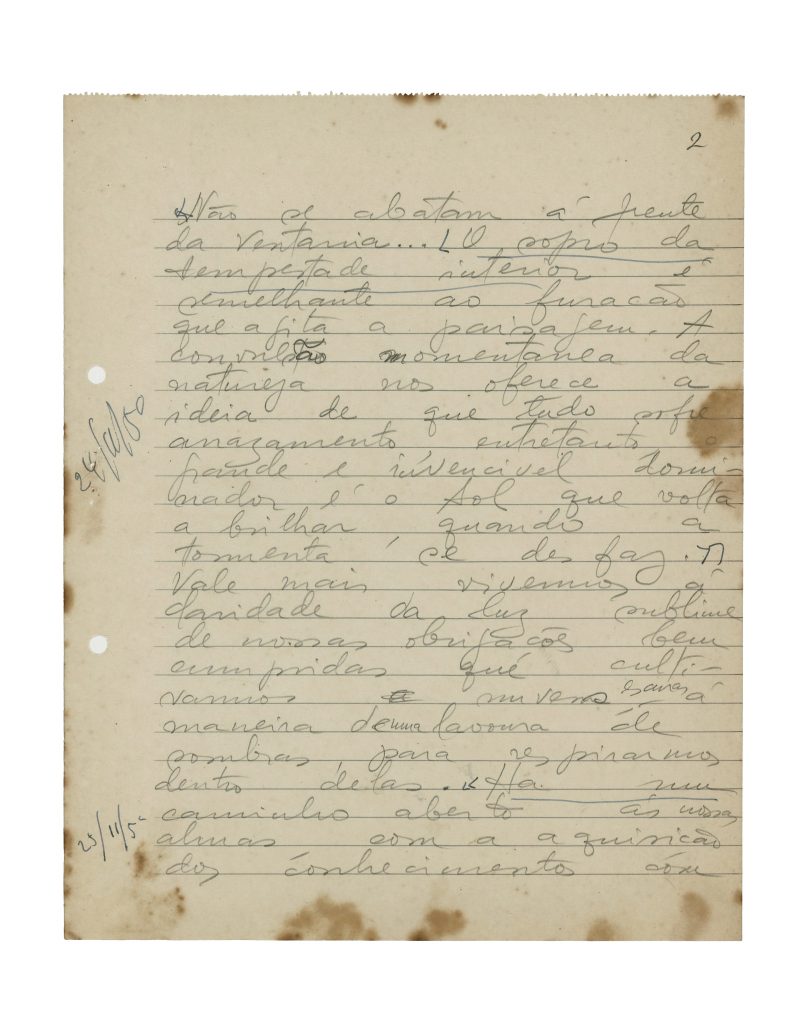 2
Não se abatam á frente
da ventania... O sopro da
tempestade interior é
semelhante ao furacão
que agita a paisagem. A
convulsão momentanea da
natureza nos oferece a
ideia de que tudo sofre
arrazamento entretanto o
grande e invencivel domi-
nador é o Sol que volta
a brilhar quando a
tormenta se desfaz.
Vale mais vivermos á
claridade da luz sublime
de nossas obrigações bem
cumpridas que culti-
vamos nuvens á
maneira de uma lavoura de
sombras, para respirarmos
dentro delas. Ha um
caminho aberto ás nossas
almas com a aquisição
dos conhecimentos com
25/11/50